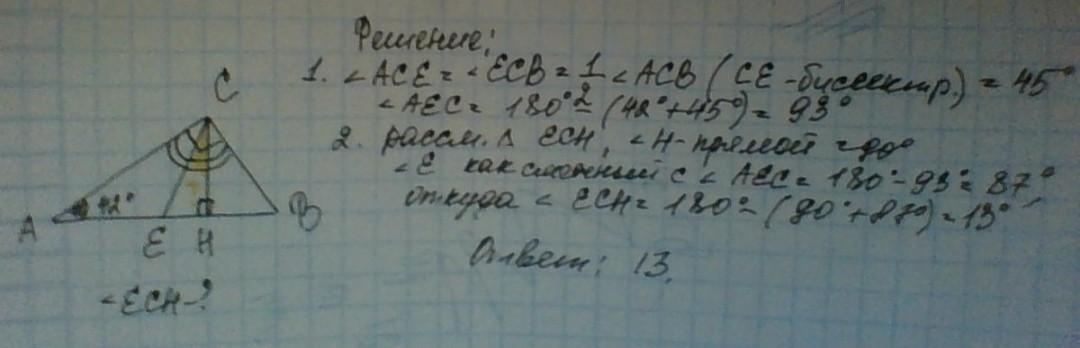 Решение:
1. ∠ACE = ∠ECB = 1/2 ∠ACB (CE - биссектр.) = 45°
∠AEC = 180° - (42° + 45°) = 93°
2. рассм. Δ ECH, ∠H - прямой = 90°
∠E как смежный с ∠AEC = 180° - 93° = 87°,
откуда ∠ECH = 180° - (90° + 87°) = 13°
Ответ: 13.
C
42°
A
B
E H
∠ECH - ?